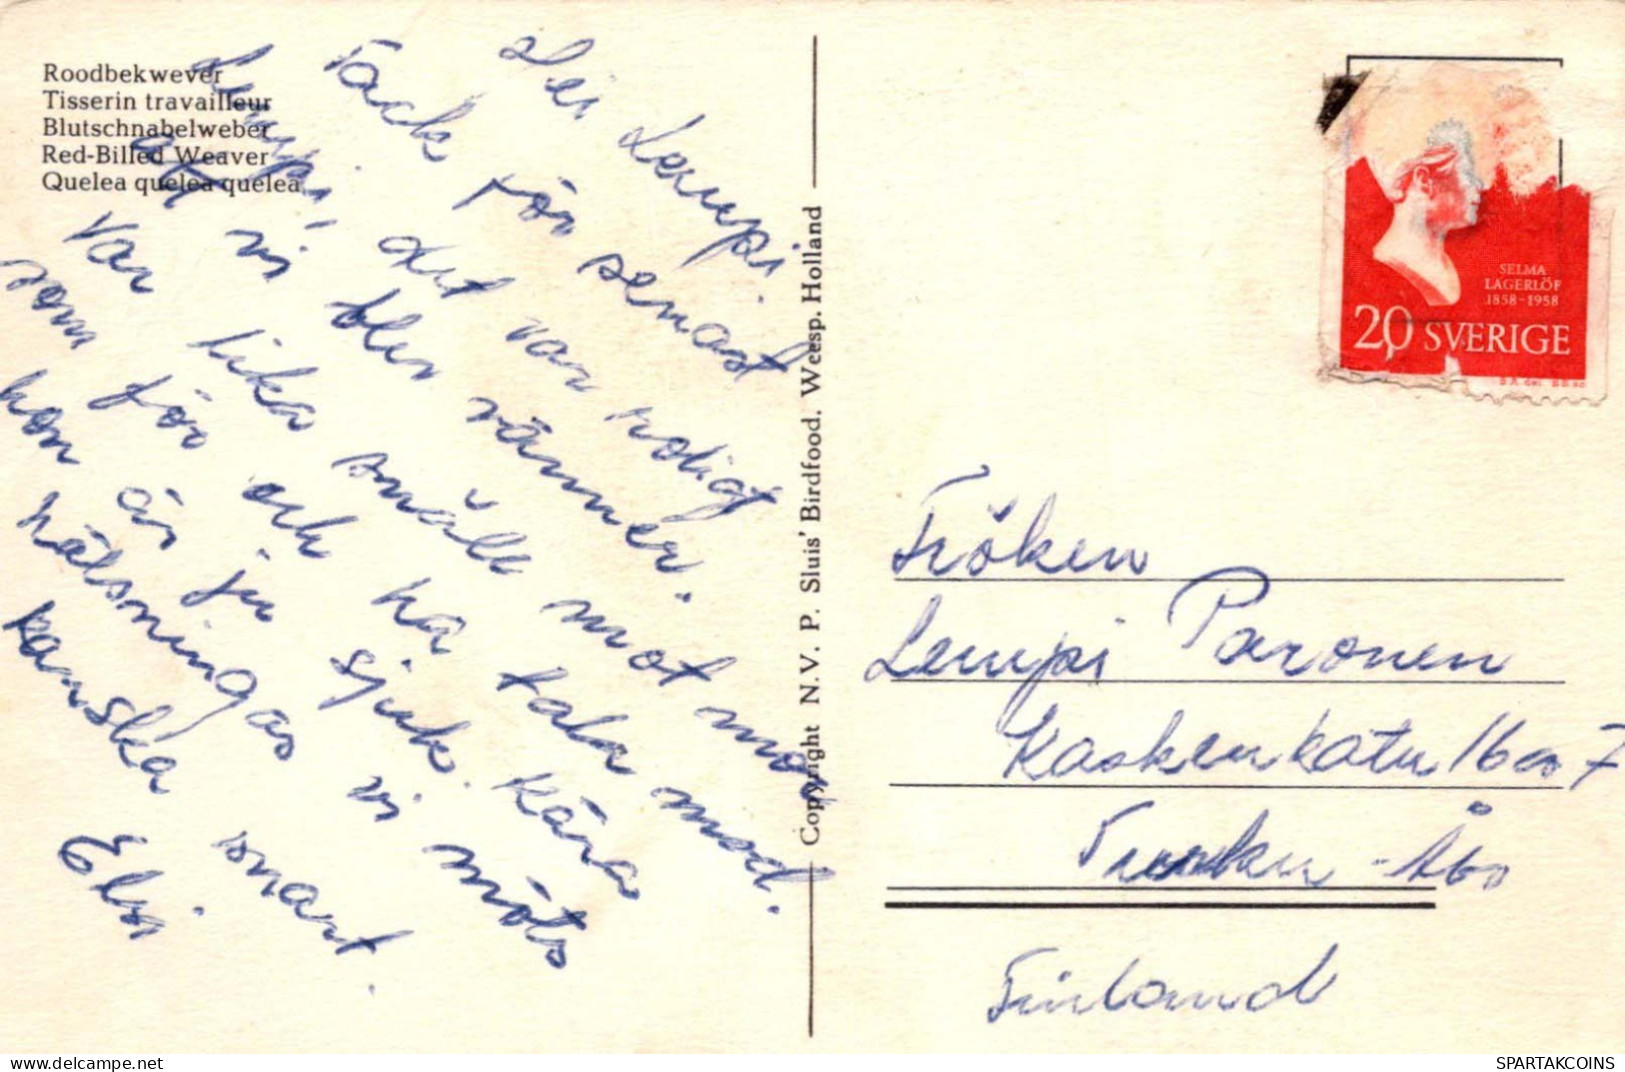 Roodbekwever
Tisserin travailleur
Blutschnabelweber
Red-Billed Weaver
Quelea quelea quelea
Hei Lempi.
Tack för senast
Lempi, det var roligt
att vi blev vänner.
var lika snäll mot mej
som för och ha tala med.
hon är ju sjuk. Kära
hälsningar vi möts
kanska snart.
Elsi.
Copyright N.V. P. Sluis' Birdfood. Weesp. Holland
SELMA
LAGERLÖF
1858-1958
20 SVERIGE
Fröken
Lempi Paronen
Kaskenkatu 16 as 7
Turku - Åbo
Finland
delcampe.net
SPARTAKCOINS